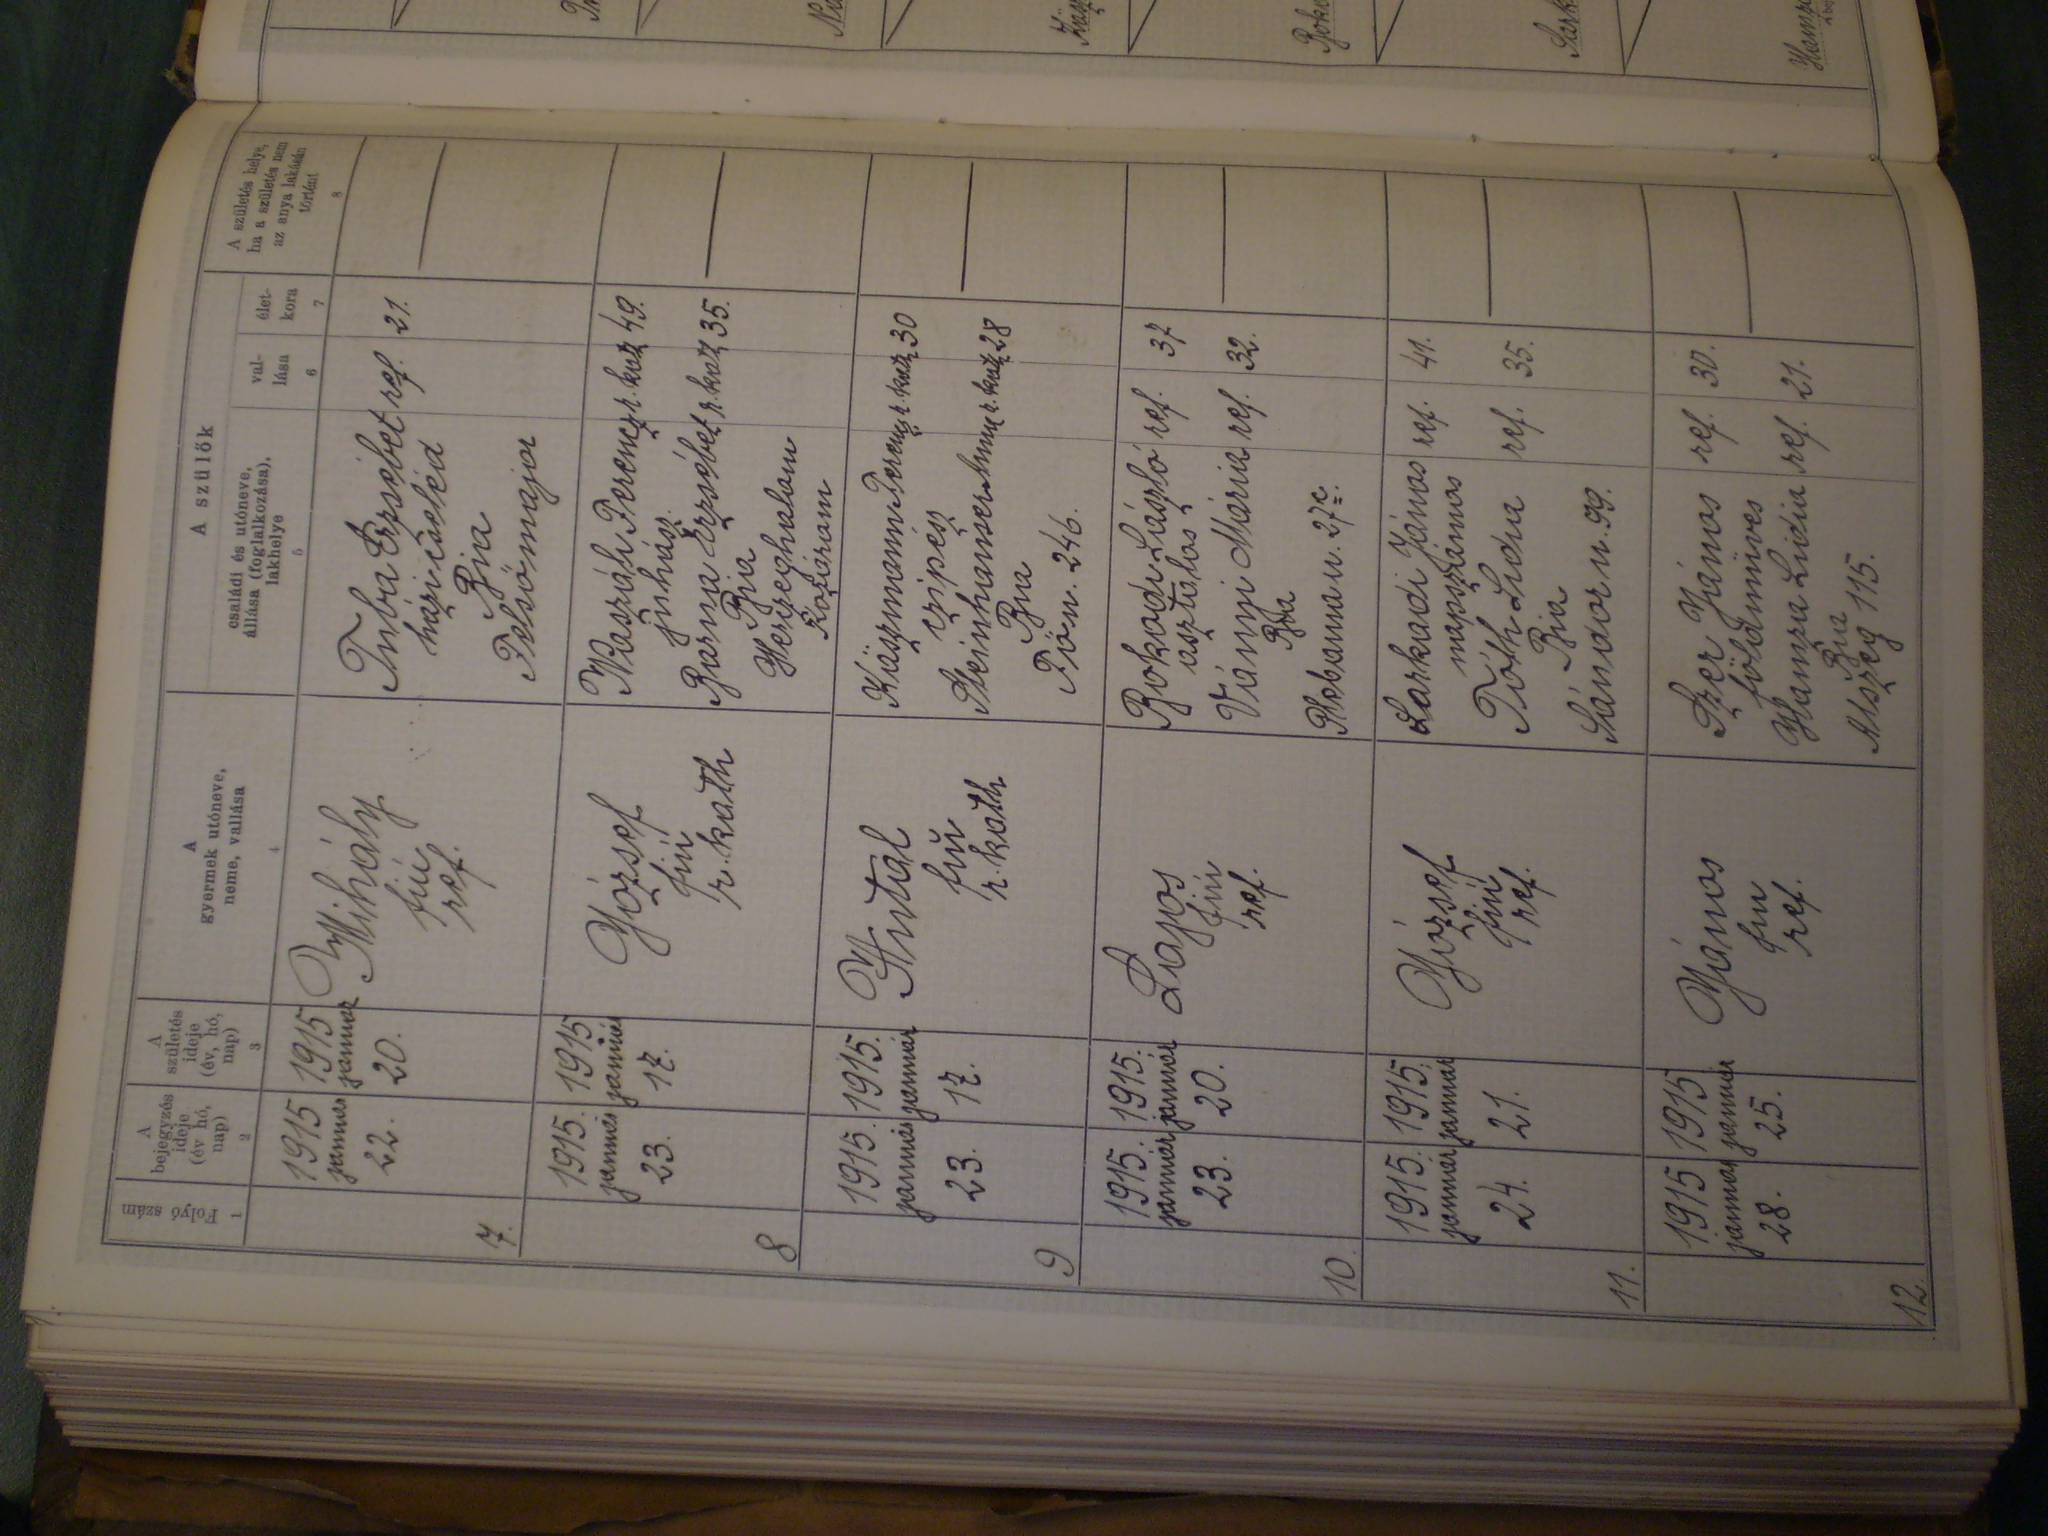 Folyó szám
A bejegyzés ideje (év hó, nap)
A születés ideje (év, hó, nap)
A gyermek utóneve, neme, vallása
A szülők
családi és utóneve, állása (foglalkozása), lakhelye
val-lása
élet-kora
A születés helye, ha a születés nem az anya lakásán történt
1
2
3
4
5
6
7
8
7.
1915 január 22.
1915 január 20.
Mihály
fiú
ref.
Tuba Erzsébet ref. 21.
házicseléd
Bia
Felsőmajor
8
1915. január 23.
1915 január 17.
József
fiú
r. kath
Ferenc r. kath 49.
juhász
Barna Erzsébet r. kath 35.
Bia
Herceghalom
9
1915. január 23.
1915. január 17.
Antal
fiú
r. kath
Ferenc r. kath 30
czipész
Anna r. kath 28
Bia
Fő u. 246.
10.
1915. január 23.
1915. január 20.
Lajos
fiú
ref.
Bokodi László ref. 37
asztalos
Vámi Mária ref. 32.
Bia
27c.
11.
1915. január 24.
1915. január 21.
József
fiú
ref.
Sarkadi János ref. 41.
napszámos
Tóth Lidia ref. 35.
Bia
Sándor u. 99.
12.
1915 január 28.
1915 január 25.
János
fiú
ref.
Szer János ref. 30.
földmüves
Hamza Lidia ref. 21.
Bia
Alszeg 115.